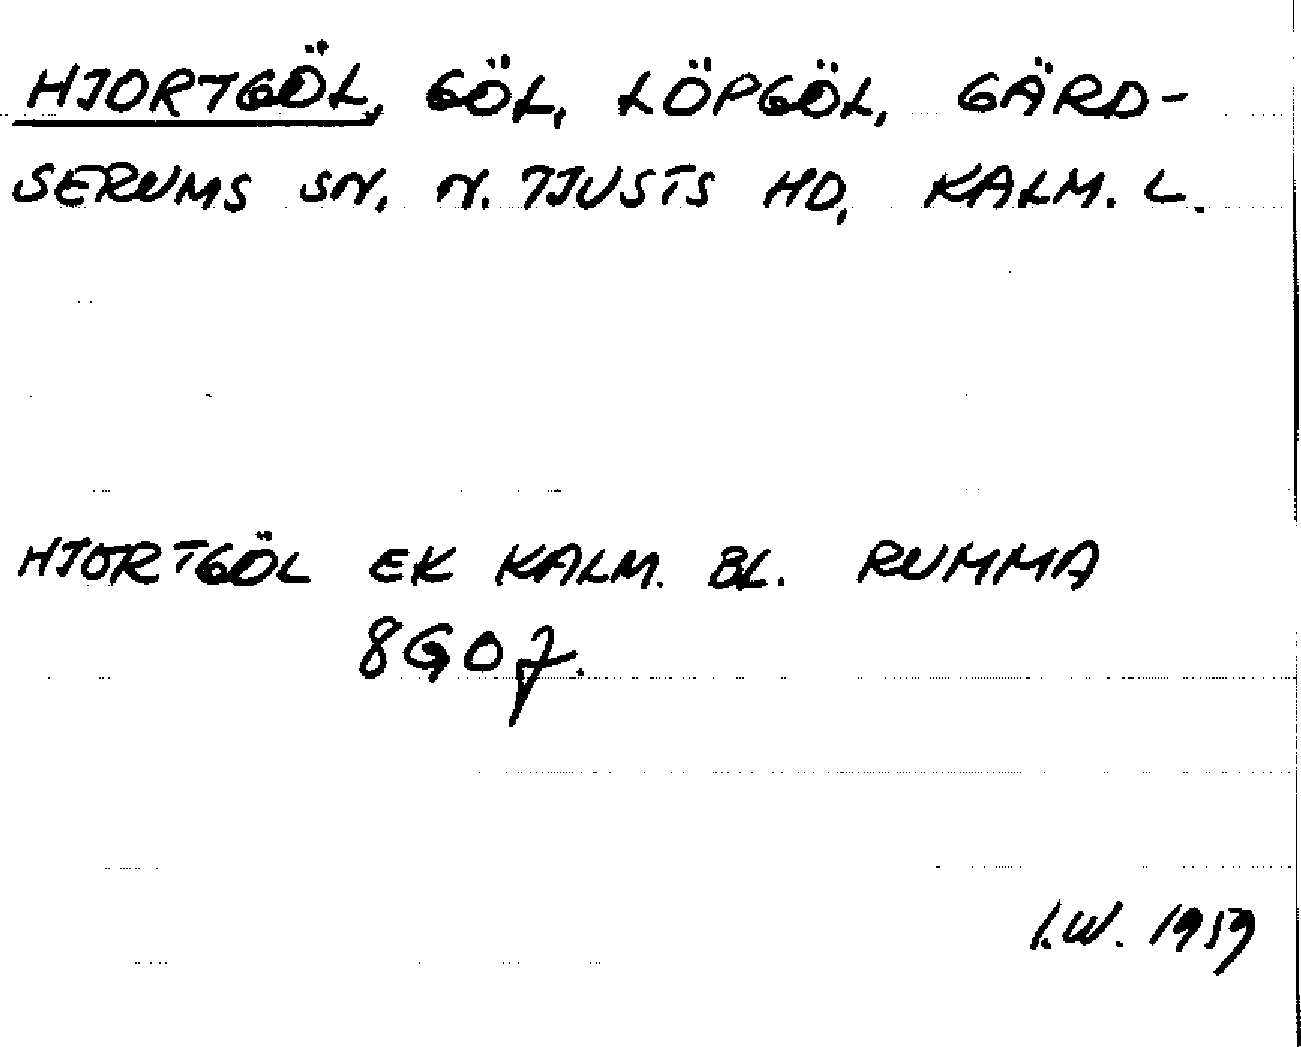 HJORTGÖL, GÖL, LÖPGÖL, GÄRD-
SERUMS SN, N. TJUSTS HD, KALM. L.
HJORTGÖL EK KALM. BL. RUMMA
8G0f.
I.W. 1959